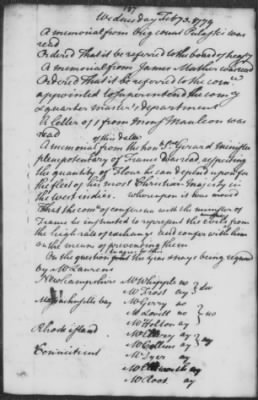 157
Wednesday Feby 3. 1779
A memorial from brig count Pulaski was
read
Ordered That it be referred to the board of
A memorial from James Mather was read
Ordered That it be referred to the comee
appointed to superintend the comy
& quarter master's department
A letter of 1 from Monsr Mauleon was
read
of this date
A memorial from the honble Sr Gerard minister
plenipotentiary of France was read respecting
the quantity of Flour he can depend upon for
the fleet of his most Christian majesty in
the West indies. Whereupon it was moved
That the comee of conference with the minister of
France be instructed to represent the evils from
the high rate of exchange and confer with him
on the means of preventing them
On the question the yeas & nays being required
by Mr Laurens
New hampshire Mr Whipple no
Mr Frost ay
Massachusetts bay Mr Gerry no
Mr Lovell no
Mr Holten ay
no
Rhode island Mr Ellery ay
Mr Collins ay
ay
Connecticut Mr Dyer ay
Mr Ellsworth ay
Mr Root ay